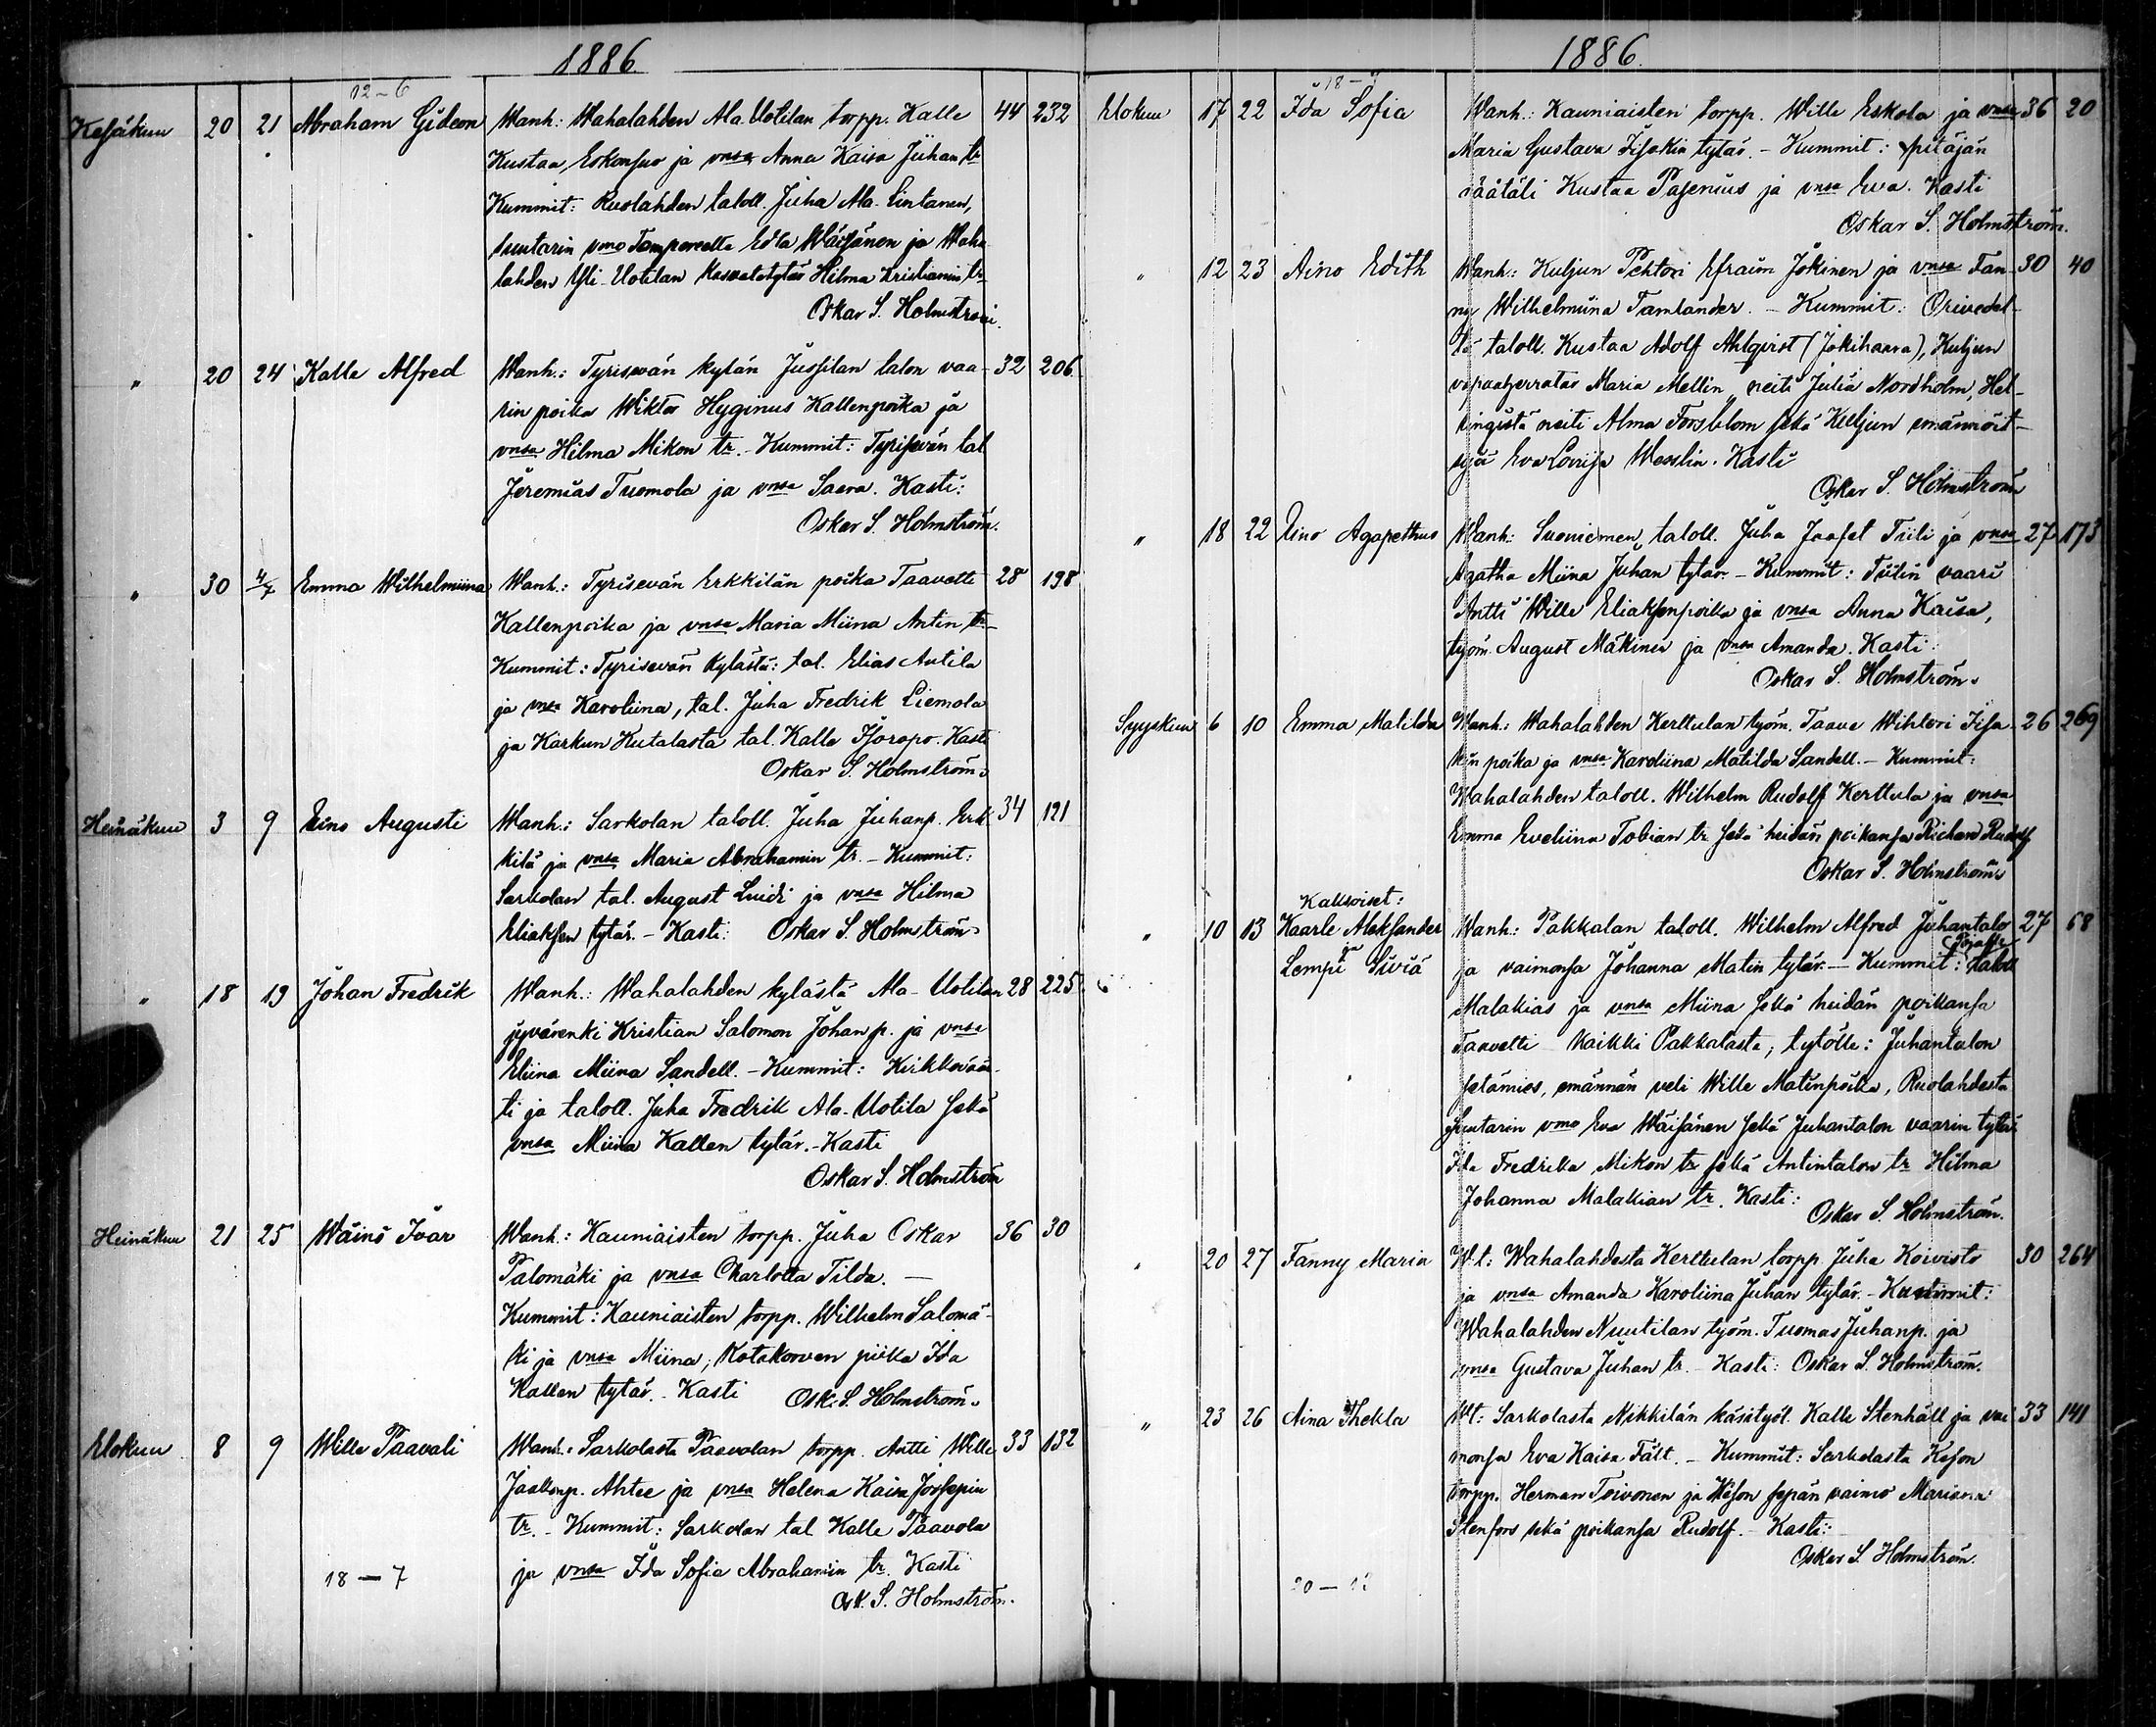 1886.
12-6
Kesäkuu 20 21 Abraham Gideon Wanh: Wahalahden Ala-Uotilan torpp. Kalle 44 232
Kustaa Eskonsuo ja vnsa Anna Kaisa Juhan tr
Kummit: Ruolahden taloll. Juha Ala-Lintanen,
suutarin vmo Tampereelta Edla Wäisänen ja Waha
lahden Yli-Uotilan kasvatetytär Hilma Kristianin tr-
Oskar S. Holmström.
" 20 24 Kalle Alfred Wanh.: Tyrisevän kylän Jussilan talon vaa- 32 206
rin poika Wiktor Hyginus Kallenpoika ja
vnsa Hilma Mikon tr. - Kummit: Tyrisevän tal
Jeremias Tuomola ja vnsa Saara. Kasti:
Oskar S. Holmström.
" 30 4/7 Emma Wilhelmiina Wanh.: Tyrisevän Erkkilän poika Taavetti 28 198
Kallenpoika ja vnsa Maria Miina Antin tr-
Kummit: Tyrisevän kylästä: tal. Elias Antila
ja vnsa Karoliina, tal. Juha Fredrik Liemola
ja Karkun Kutalasta tal. Kalle Kasti
Oskar S. Holmström.
Heinäkuu 3 9 Eino Augusti Wanh.: Sarkolan taloll. Juha Juhanp. Erk 34 121
kilä ja vnsa Maria Abrahamin tr. - Kummit:
Sarkolan tal. August Luidi ja vnsa Hilma
Eliaksen tytär. - Kasti: Oskar S. Holmström
" 18 19 Johan Fredrik Wanh.: Wahalahden kylästä Ala-Uotilan 28 225
jyvärenki Kristian Salomon Johan p. ja vnsa
Eliina Miina Sandell. - Kummit: Kirkkovään-
ti ja taloll. Juha Fredrik Ala-Uotila sekä
vnsa Miina Kallen tytär. - Kasti
Oskar S. Holmström
Heinäkuu 21 25 Wäinö Ivar Wanh.: Kauniaisten torpp. Juha Oskar 36 30
Palomäki ja vnsa Charlotta Tilda. -
Kummit: Kauniaisten torpp. Wilhelm Salomä-
ki ja vnsa Miina, Kotakorven piika Ida
Kallen tytär. - Kasti Osk. S. Holmström.
Elokuu 8 9 Wille Paavali Wanh.: Sarkolasta Paavolan torpp. Antti Wille 33 132
Jaakonp. Ahtee ja vnsa Helena Kaisa Joosepin
tr. - Kummit: Sarkolan tal Kalle Paavola
ja vnsa Ida Sofia Abrahamin tr. Kasti
18 - 7 Osk. S. Holmström.
1886.
18-
Elokuu 17 22 Ida Sofia Wanh.: Kauniaisten torpp. Wille Eskola ja vnsa 36 20
Maria Gustava Iisakin tytär. - Kummit: pitäjän
räätäli Kustaa Pasenius ja vnsa Eva. Kasti
Oskar S. Holmström.
" 12 23 Aino Edith Wanh.: Kuljun Pehtori Efraim Jokinen ja vnsa Fan- 30 40
ny Wilhelmiina Tamlander. - Kummit: Orivedel-
tä taloll. Kustaa Adolf Ahlqvist (Jokihaara), Kuljun
vapaaherratar Maria Mellin, neiti Julia Nordholm, Hel-
singistä neiti Alma Forsblom sekä Kuljun emännöit-
sijä Eva Lovisa Wesslin. Kasti
Oskar S. Holmström
" 18 22 Eino Agapethus Wanh: Suoniemen taloll. Juha Jaafet Tiili ja vnsa 27 173
Agatha Miina Juhan tytär. - Kummit: Tiilin vaari
Antti Wille Eliaksenpoika ja vnsa Anna Kaisa,
työm. August Mäkinen ja vnsa Amanda. Kasti:
Oskar S. Holmström.
Syyskuu 6 10 Emma Matilda Wanh: Wahalahden Kerttulan työm. Taave Wihtori Iisa- 26 269
kin poika ja vnsa Karoliina Matilda Sandell. - Kummit:
Wahalahden taloll. Wilhelm Rudolf Kerttula ja vnsa
Emma Eveliina Tobian tr. sekä heidän poikansa Richard Rudolf
Oskar S. Holmström.
Kaksoiset:
" 10 13 Kaarle Aleksander Wanh: Pakkalan taloll. Wilhelm Alfred Juhantalo 27 68
ja Lempi Siviä ja vaimonsa Johanna Matin tytär. - Kummit: Pojalle
Malakias ja vnsa Miina sekä heidän poikansa
Taavetti kaikki Pakkalasta, tytölle: Juhantalon
setämies, emännän veli Wille Matinpoika, Ruolahdesta
suutarin vmo Eva Wäisänen sekä Juhantalon vaarin tytär
Ida Fredrika Mikon tr sekä Antintalon tr Hilma
Johanna Malakian tr. Kasti:
Oskar S. Holmström.
" 20 27 Fanny Maria W.t: Wahalahdesta Kerttulan torpp. Juha Koivisto 30 264
ja vnsa Amanda Karoliina Juhan tytär. - Kummit:
Wahalahden Nuutilan työm. Tuomas Juhanp. ja
vnsa Gustava Juhan tr. - Kasti: Oskar S. Holmström.
" 23 26 Aina Thekla W.t: Sarkolasta Nikkilän käsityöl. Kalle Stenhäll ja vai 33 141
monsa Eva Kaisa Fält. - Kummit: Sarkolasta Keson
torpp. Herman Toivonen ja Keson sepän vaimo Mariana
Stenfors sekä poikansa Rudolf. - Kasti:
Oskar S. Holmström.
20 -